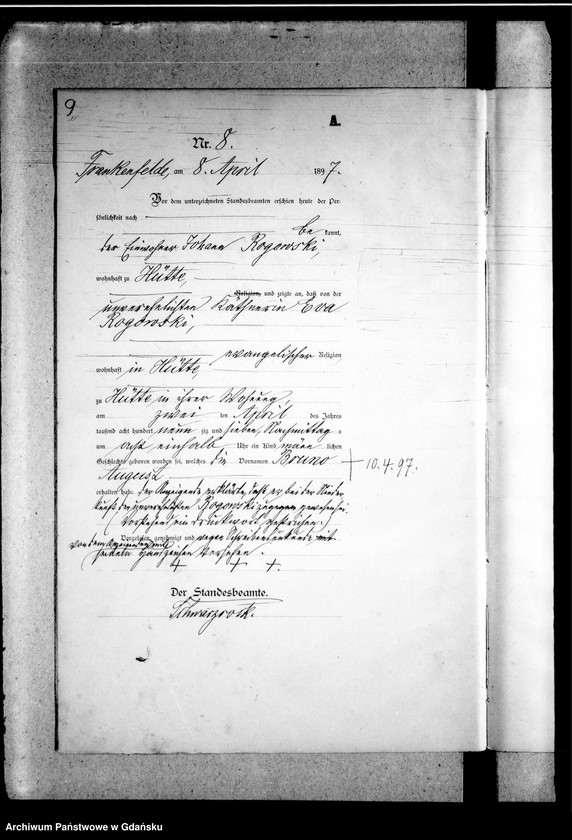 9.
A.
Nr. 8.
Frankenfelde, am 8. April 1897.
Vor dem unterzeichneten Standesbeamten erschien heute der Per-
sönlichkeit nach
be kannt,
der Einwohner Johann Rogowski,
wohnhaft zu Hütte,
Religion, und zeigte an, daß von der
unverehelichten Käthnerin Eva
Rogowski,
evangelischer Religion
wohnhaft in Hütte,
zu Hütte in ihrer Wohnung,
am zwei ten April des Jahres
tausend acht hundert neun zig und sieben, Nachmittag s
um acht einhalb Uhr ein Kind männ lichen
Geschlechts geboren worden sei, welches die Vornamen Bruno
+ 10.4.97.
August
erhalten habe. Der Anzeigende erklärte, daß er bei der Nieder-
kunft der unverehelichten Rogowski zugegen gewesen sei.
(Vorstehend ein Druckwort gestrichen.)
Vorgelesen, genehmigt und wegen Schreibensunkunde
von dem Anzeigenden mit
Handzeichen versehen.
+ + +.
Der Standesbeamte.
Schwarzrock.
Archiwum Państwowe w Gdańsku